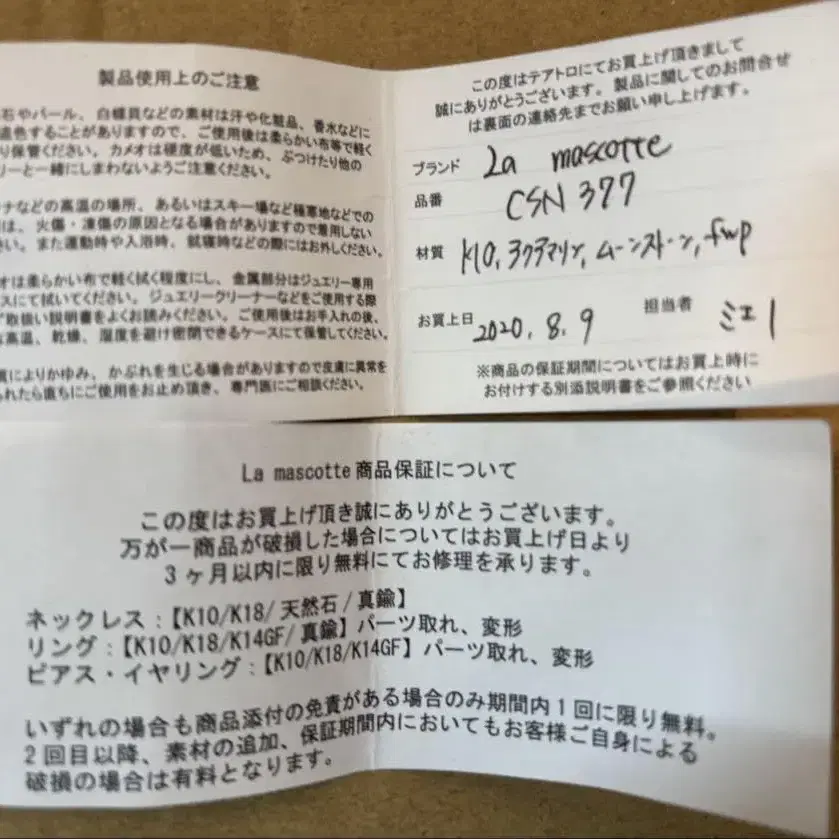 製品使用上のご注意
石やパール、白蝶貝などの素材は汗や化粧品、香水などに
退色することがありますので、ご使用後は柔らかい布等で軽く
り保管ください。カメオは硬度が低いため、ぶつけたり他の
リーと一緒にしまわないようご注意ください。
ナなどの高温の場所、あるいはスキー場など極寒地などでの
は、火傷・凍傷の原因となる場合がありますので着用しない
さい。また運動時や入浴時、就寝時などの際にはお外しください。
オは柔らかい布で軽く拭く程度にし、金属部分はジュエリー専用
スにて拭いてください。ジュエリークリーナーなどをご使用する際
取扱い説明書をよくお読みください。ご使用後はお手入れの後、
な高温、乾燥、湿度を避け密閉できるケースにて保管してください。
質によりかゆみ、かぶれを生じる場合がありますので皮膚に異常を
られたら直ちにご使用をお止め頂き、専門医にご相談ください。
この度はテアトロにてお買上げ頂きまして
誠にありがとうございます。製品に関してのお問合せ
は裏面の連絡先までお願い申し上げます。
ブランド La mascotte
品番 CSN 377
材質 K10, アクアマリン, ムーンストーン, fwp
お買上日 2020. 8. 9 担当者
※商品の保証期間についてはお買上時に
お付けする別添説明書をご参照ください
La mascotte商品保証について
この度はお買上げ頂き誠にありがとうございます。
万が一商品が破損した場合についてはお買上げ日より
3ヶ月以内に限り無料にてお修理を承ります。
ネックレス:【K10/K18/天然石/真鍮】
リング:【K10/K18/K14GF/真鍮】パーツ取れ、変形
ピアス・イヤリング:【K10/K18/K14GF】パーツ取れ、変形
いずれの場合も商品添付の免責がある場合のみ期間内1回に限り無料。
2回目以降、素材の追加、保証期間内においてもお客様ご自身による
破損の場合は有料となります。